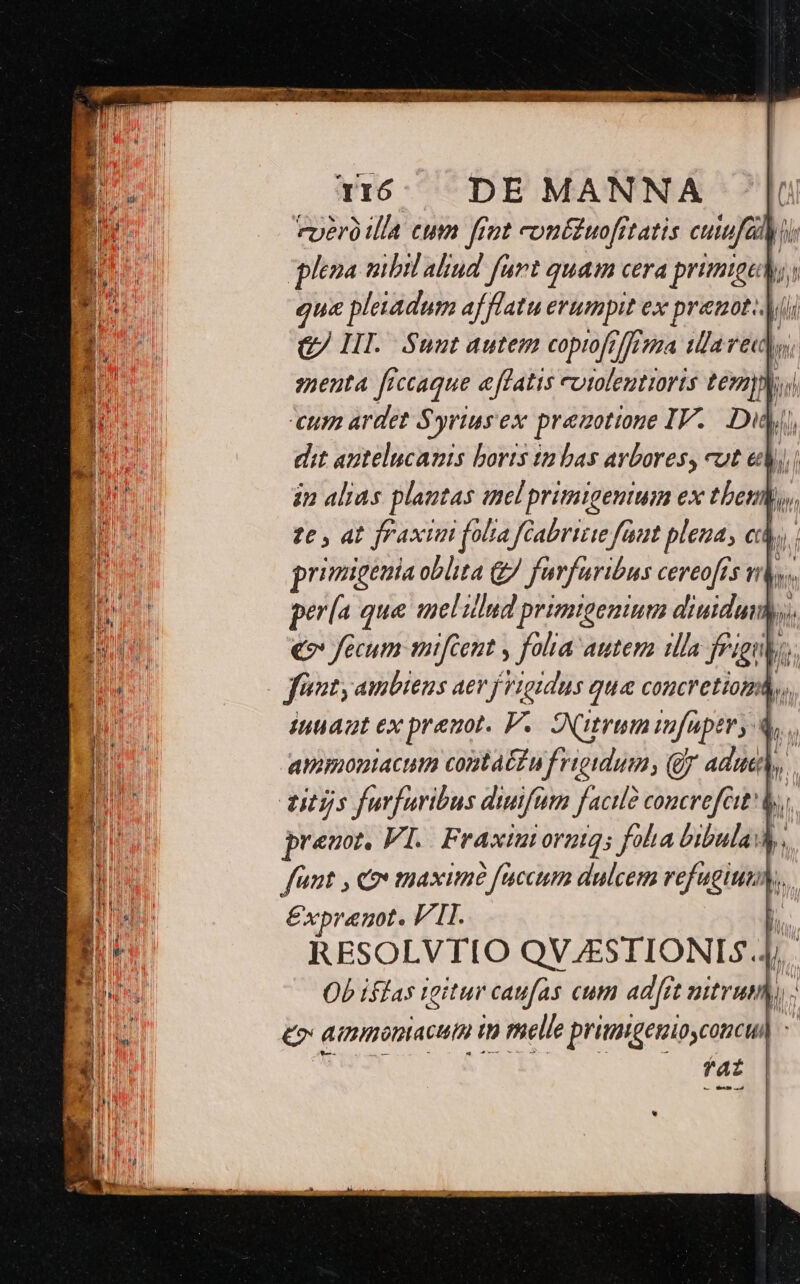 116 DE MANNA
verò illa cum sint vnctuositatis cuiusda
plena nihil aliud sunt quam cera primige
quæ pleiadum afflatu erumpit ex prænot.
& III. Sunt autem copiosissima illa
menta siccaque æstatis violentioris temp
cum ardet Syrius ex prænotione IV.
dit antelucanis horis in has arbores, vt
in alias plantas mel primigenium ex
te, at fraxini folia scabritie sunt plena,
primigenia oblita & furfuribus cereosis
persa quæ mel illud primigenium diuidunt
& secum miscent, folia autem illa
sunt, ambiens aer frigidus quæ concretionē
iuuant ex prænot. V. Nitrum insuper,
ammoniacum contactu frigidum, &
titijs furfuribus diuisum facilè concrescit
prænot. VI. Fraxini orniq; folia bibula
sunt, & maximè succum dulcem refugium
Ex prænot. VII.
RESOLVTIO QVÆSTIONIS.
Ob istas igitur causas cum adsit nitrum
& ammoniacum in melle primigenio,
rat